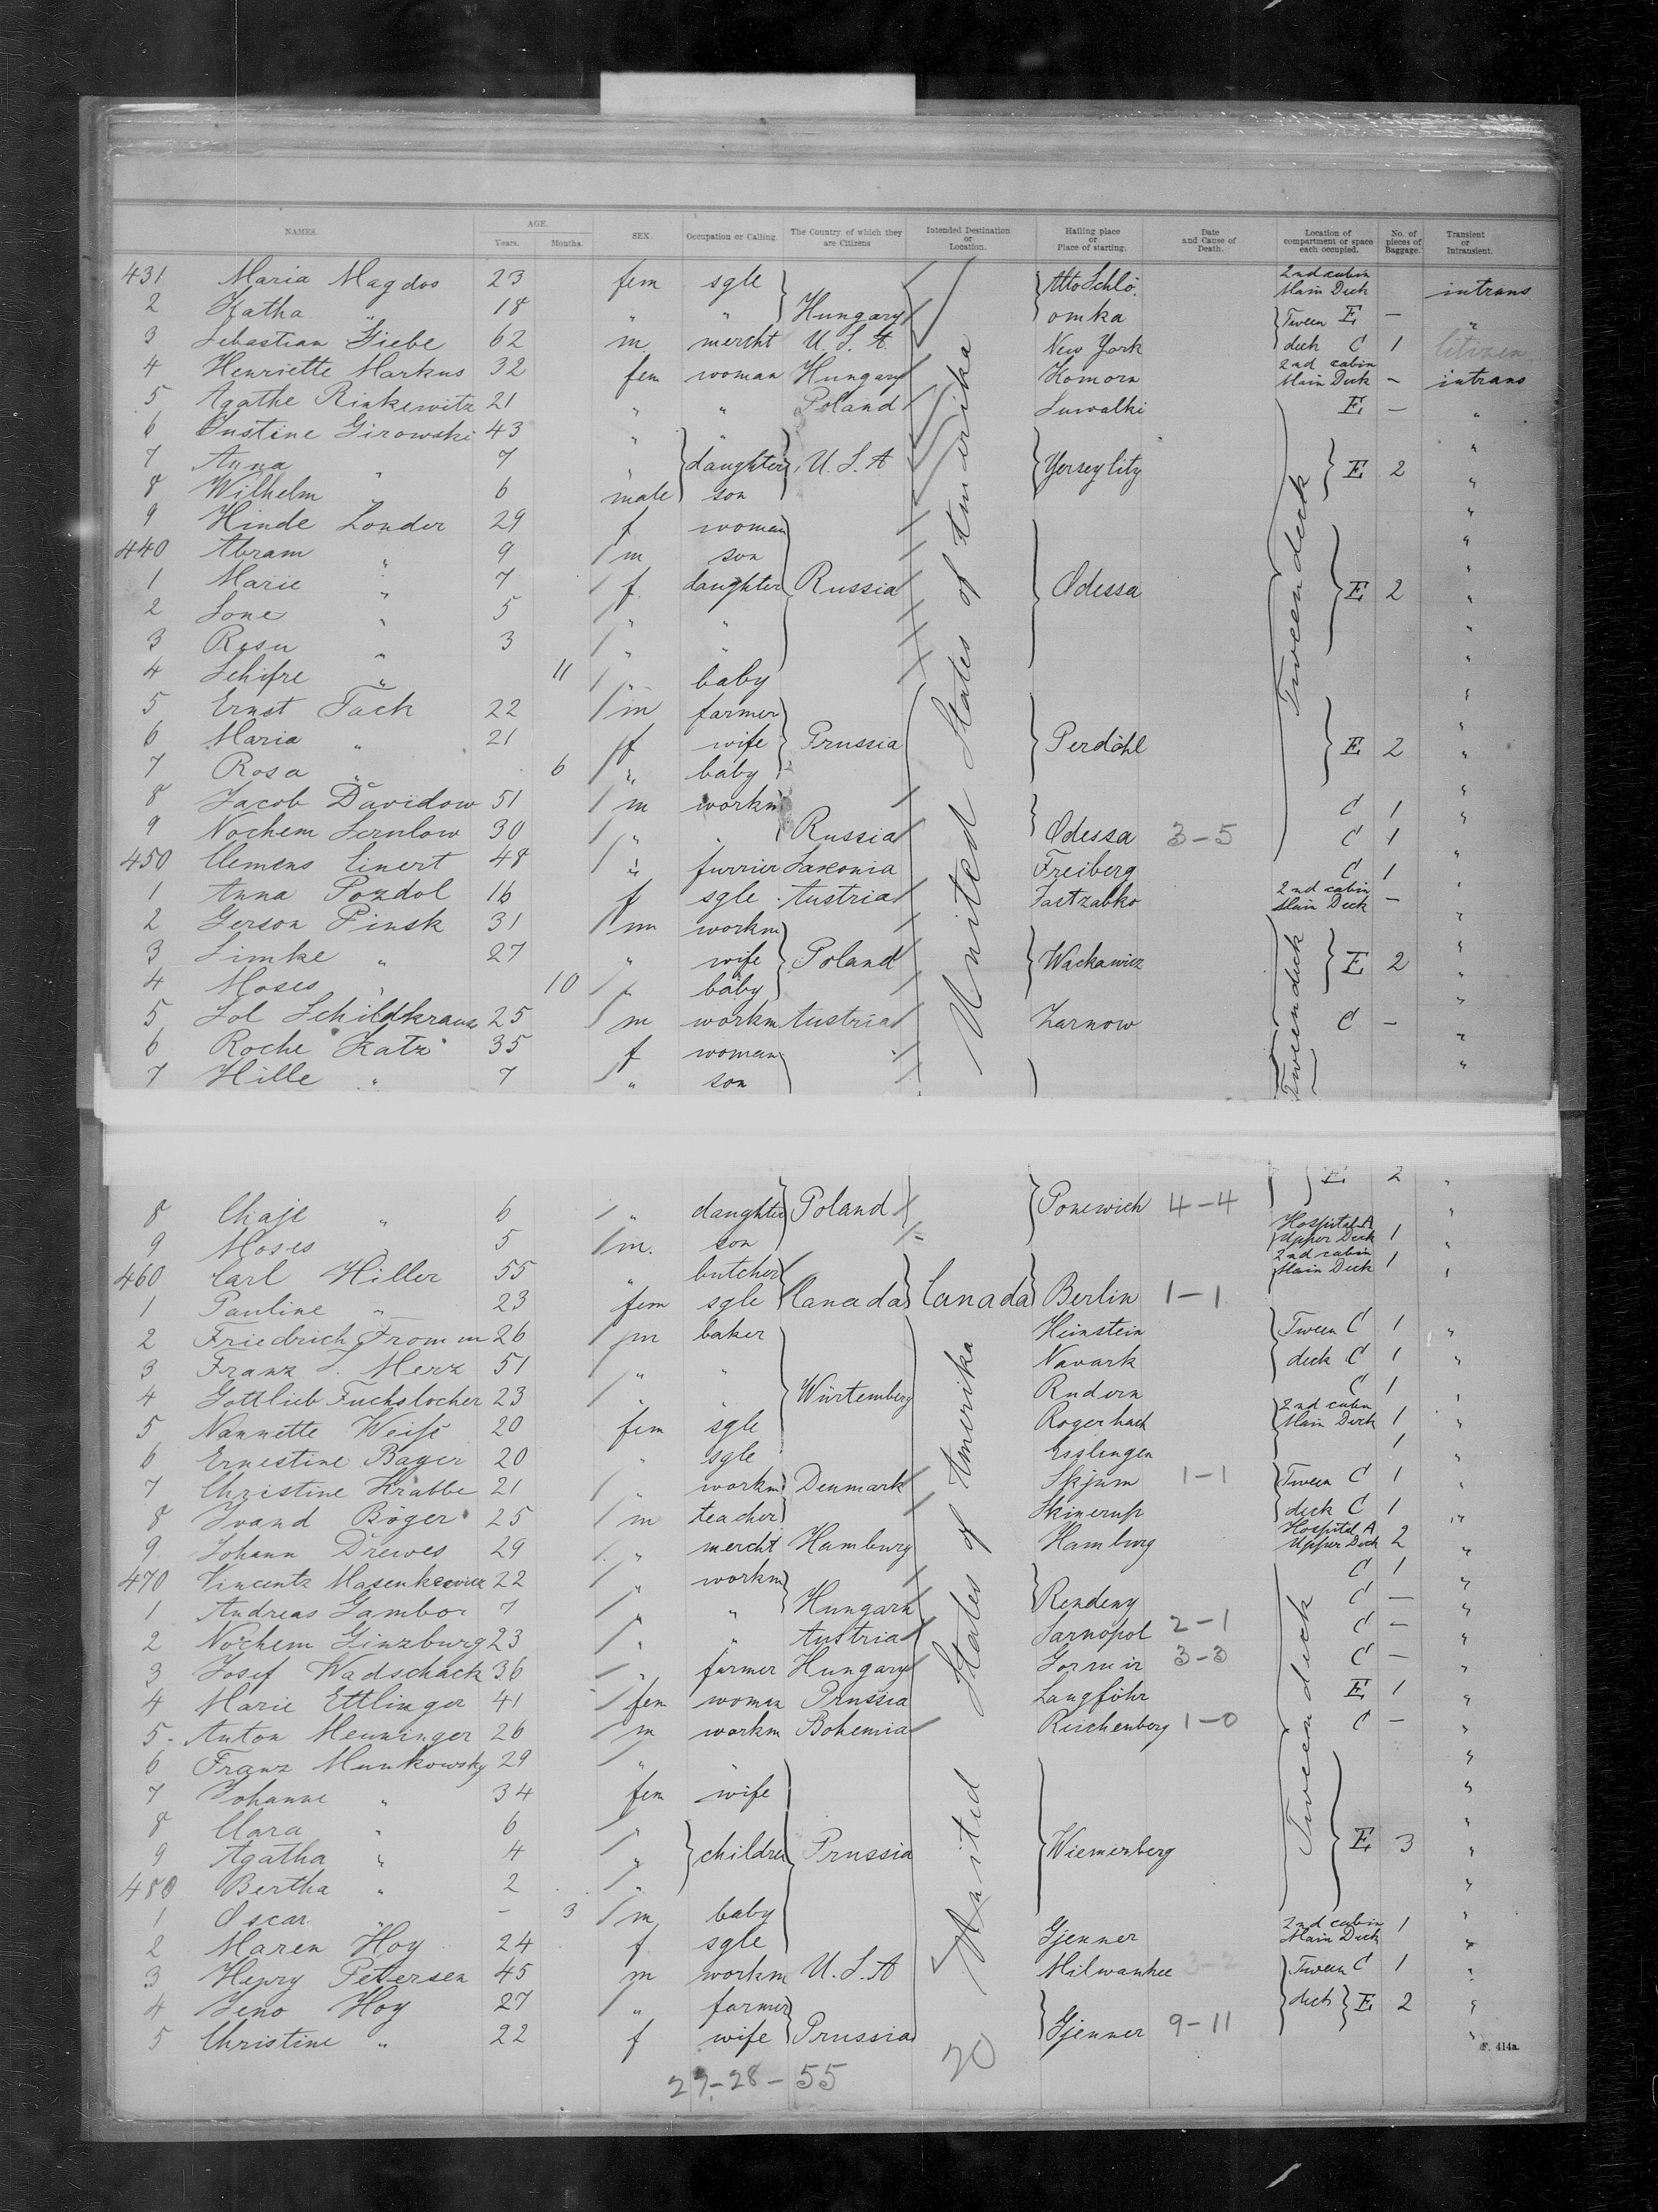 NAMES. AGE. Years. Months. SEX. Occupation or Calling. The Country of which they are Citizens Intended Destination or Location. Hailing place or Place of starting. Date and Cause of Death. Location of compartment or space each occupied. No. of pieces of Baggage. Transient or Intransient.
431 Maria Magdos 23 fem sgle Alto Schlo. 2nd cabin Main Deck intrans
2 Katha " 18 " " Hungary omka Tween E — "
3 Sebastian Giebe 62 m mercht U. S. A. New York deck C 1 Citizen
4 Henriette Markus 32 fem woman Hungary Komorn 2nd cabin Main Deck — intrans
5 Agathe Rinkewitz 21 " " Poland Suwalki E — "
6 Justine Girowski 43 " " "
7 Anna " 7 " daughter U. S. A Yersey City E 2 "
8 Wilhelm " 6 male son "
9 Hinde Londer 29 f woman "
440 Abram " 9 m son "
1 Marie " 7 f. daughter Russia Odessa E 2 "
2 Sone " 5 " " "
3 Rosu " 3 " " "
4 Schifre " 11 " baby "
5 Ernst Tack 22 m farmer "
6 Maria " 21 f wife Prussia Perdöhl E 2 "
7 Rosa " 6 " baby "
8 Jacob Davidow 51 m workm C 1 "
9 Nochem Sernlow 30 " " Russia Odessa 3-5 C 1 "
450 Clemens Einert 48 " furrier Saxonia Freiberg C 1 "
1 Anna Pozdol 16 f sgle Austria Jastzabko 2nd cabin Main Deck — "
2 Gerson Pinsk 31 m workm "
3 Simke " 27 " wife Poland Wackawicz E 2 "
4 Moses " 10 " baby "
5 Sol Schildkraus 25 m workm Austria Zarnow C — "
6 Roche Katz 35 f woman "
7 Hille " 7 " son "
United States of Amerika
Tweendeck
Tweendeck
E 2 "
8 Chaje " 6 " daughter Poland Ponewich 4-4 "
9 Moses 5 m. son Hospital A Upper Deck 1 "
460 Carl Hiller 55 " butcher 2nd cabin Main Deck 1 "
1 Pauline " 23 fem sgle Canada Canada Berlin 1-1
2 Friedrich Fromm 26 m baker Heinstein Tween C 1 "
3 Franz S. Merz 51 " " Navark deck C 1 "
4 Gottlieb Fuchslocher 23 " " Würtemberg Rudern C 1 "
5 Nannette Weiß 20 fem sgle Rogerbach 2nd cabin Main Deck 1 "
6 Ernestine Bager 20 " sgle Esslingen 1 "
7 Christine Krabbe 21 " workm Denmark Skjum 1-1 Tween C 1 "
8 Ivand Böger 25 m teacher Skinerup deck C 1 "
9 Johann Drewes 29 " mercht Hamburg Hamburg Hospital A Upper Deck 2 "
470 Vincentz Masenkewicz 22 " workm C 1 "
1 Andreas Gambor 7 " " Hungarn Rendeny C — "
2 Nochem Ginzburg 23 " " Austria Tarnopol 2-1 C — "
3 Josef Wadschack 36 " farmer Hungary 3-3 C — "
4 Marie Ettlinger 41 fem woman Prussia Langföhr E 1 "
5 Anton Menninger 26 m workm Bohemia Reichenberg 1-0 C — "
6 Franz Munkowsky 29 " "
7 Johanne " 34 fem wife "
8 Clara " 6 "
9 Agatha " 4 " children Prussia Wiemerberg E 3 "
480 Bertha " 2 " "
1 Oscar " — 3 m baby "
2 Maren Hoy 24 f sgle Gjenner 2nd cabin Main Deck 1 "
3 Henry Petersen 45 m workm U. S. A Milwaukee Tween C 1 "
4 Jeno Hoy 27 " farmer deck E 2 "
5 Christine " 22 f wife Prussia Gjenner 9-11 "
United States of Amerika
Tween deck
F. 414a.
27-28-55 20